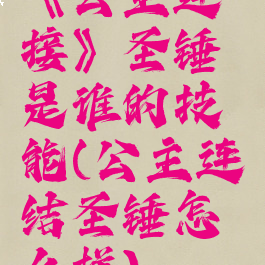 《公主连
接》圣锤
是谁的技
能(公主连
结圣锤怎
么样)